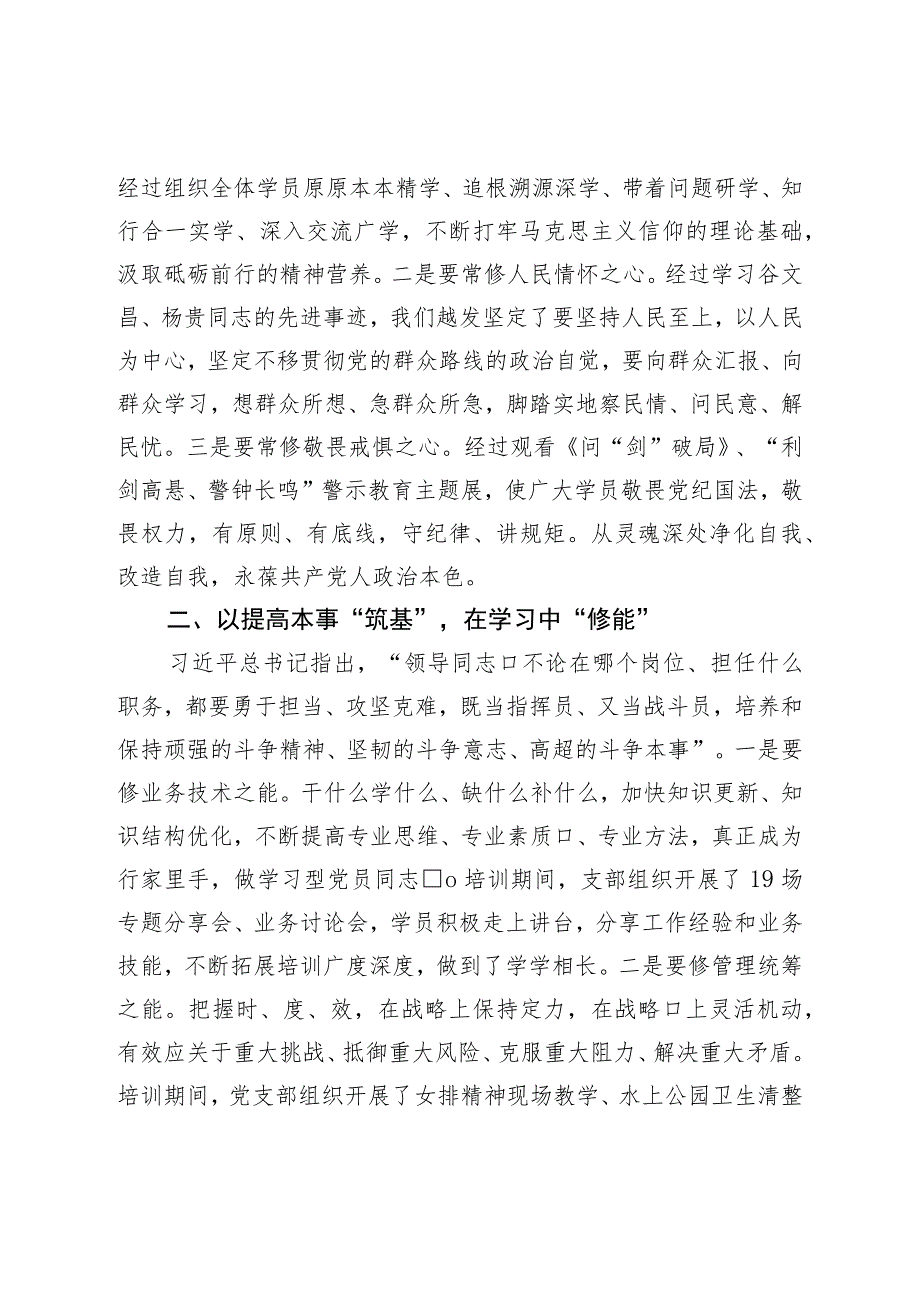 经过组织全体学员原原本本精学、追根溯源深学、带着问题研学、知
行合一实学、深入交流广学，不断打牢马克思主义信仰的理论基础，
汲取砥砺前行的精神营养。二是要常修人民情怀之心。经过学习谷文
昌、杨贵同志的先进事迹，我们越发坚定了要坚持人民至上，以人民
为中心，坚定不移贯彻党的群众路线的政治自觉，要向群众汇报、向
群众学习，想群众所想、急群众所急，脚踏实地察民情、问民意、解
民忧。三是要常修敬畏戒惧之心。经过观看《问“剑”破局》、“利
剑高悬、警钟长鸣”警示教育主题展，使广大学员敬畏党纪国法，敬
畏权力，有原则、有底线，守纪律、讲规矩。从灵魂深处净化自我、
改造自我，永葆共产党人政治本色。
二、以提高本事“筑基”，在学习中“修能”
习近平总书记指出，“领导同志口不论在哪个岗位、担任什么
职务，都要勇于担当、攻坚克难，既当指挥员、又当战斗员，培养和
保持顽强的斗争精神、坚韧的斗争意志、高超的斗争本事”。一是要
修业务技术之能。干什么学什么、缺什么补什么，加快知识更新、知
识结构优化，不断提高专业思维、专业素质口、专业方法，真正成为
行家里手，做学习型党员同志□o培训期间，支部组织开展了19场
专题分享会、业务讨论会，学员积极走上讲台，分享工作经验和业务
技能，不断拓展培训广度深度，做到了学学相长。二是要修管理统筹
之能。把握时、度、效，在战略上保持定力，在战略口上灵活机动，
有效应关于重大挑战、抵御重大风险、克服重大阻力、解决重大矛盾。
培训期间，党支部组织开展了女排精神现场教学、水上公园卫生清整